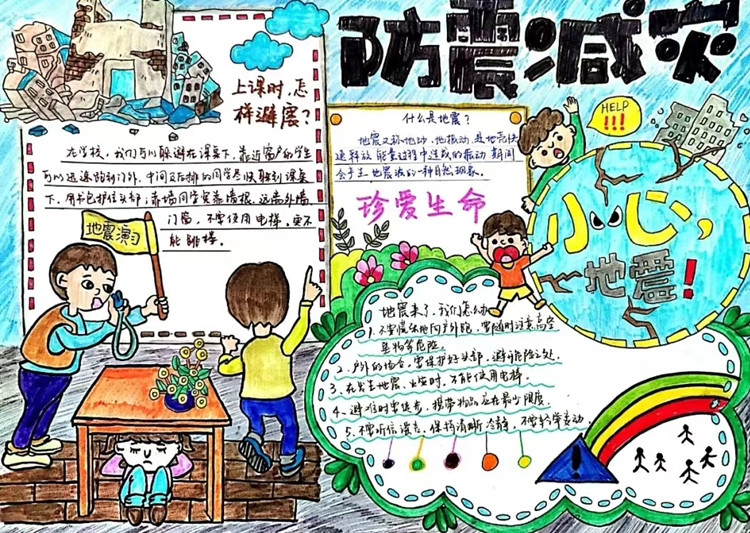 防震减灾
上课时,怎
样避震?
在学校,我们可以躲避在课桌下,靠近窗户的学生
可以迅速撤到门外,中间及后排的同学尽快躲到课桌
下,用书包护住头部;靠墙同学要靠墙根,远离外墙
门窗,不要使用电梯,更不
能跳楼。
地震演习
什么是地震?
地震又称地动、地振动,是地壳快
速释放能量过程中造成的振动,期间
会产生地震波的一种自然现象。
珍爱生命
HELP
!!!
小心,
地震!
地震来了,我们怎么办
1、不要慌张地向户外跑,要随时注意高空
坠物等危险。
2、户外的场合,要保护好头部,避让危险之处。
3、在发生地震、火灾时,不能使用电梯。
4、避难时要徒步,携带物品应在最少限度。
5、不要听信谣言,保持清晰冷静,不要轻举妄动。
!